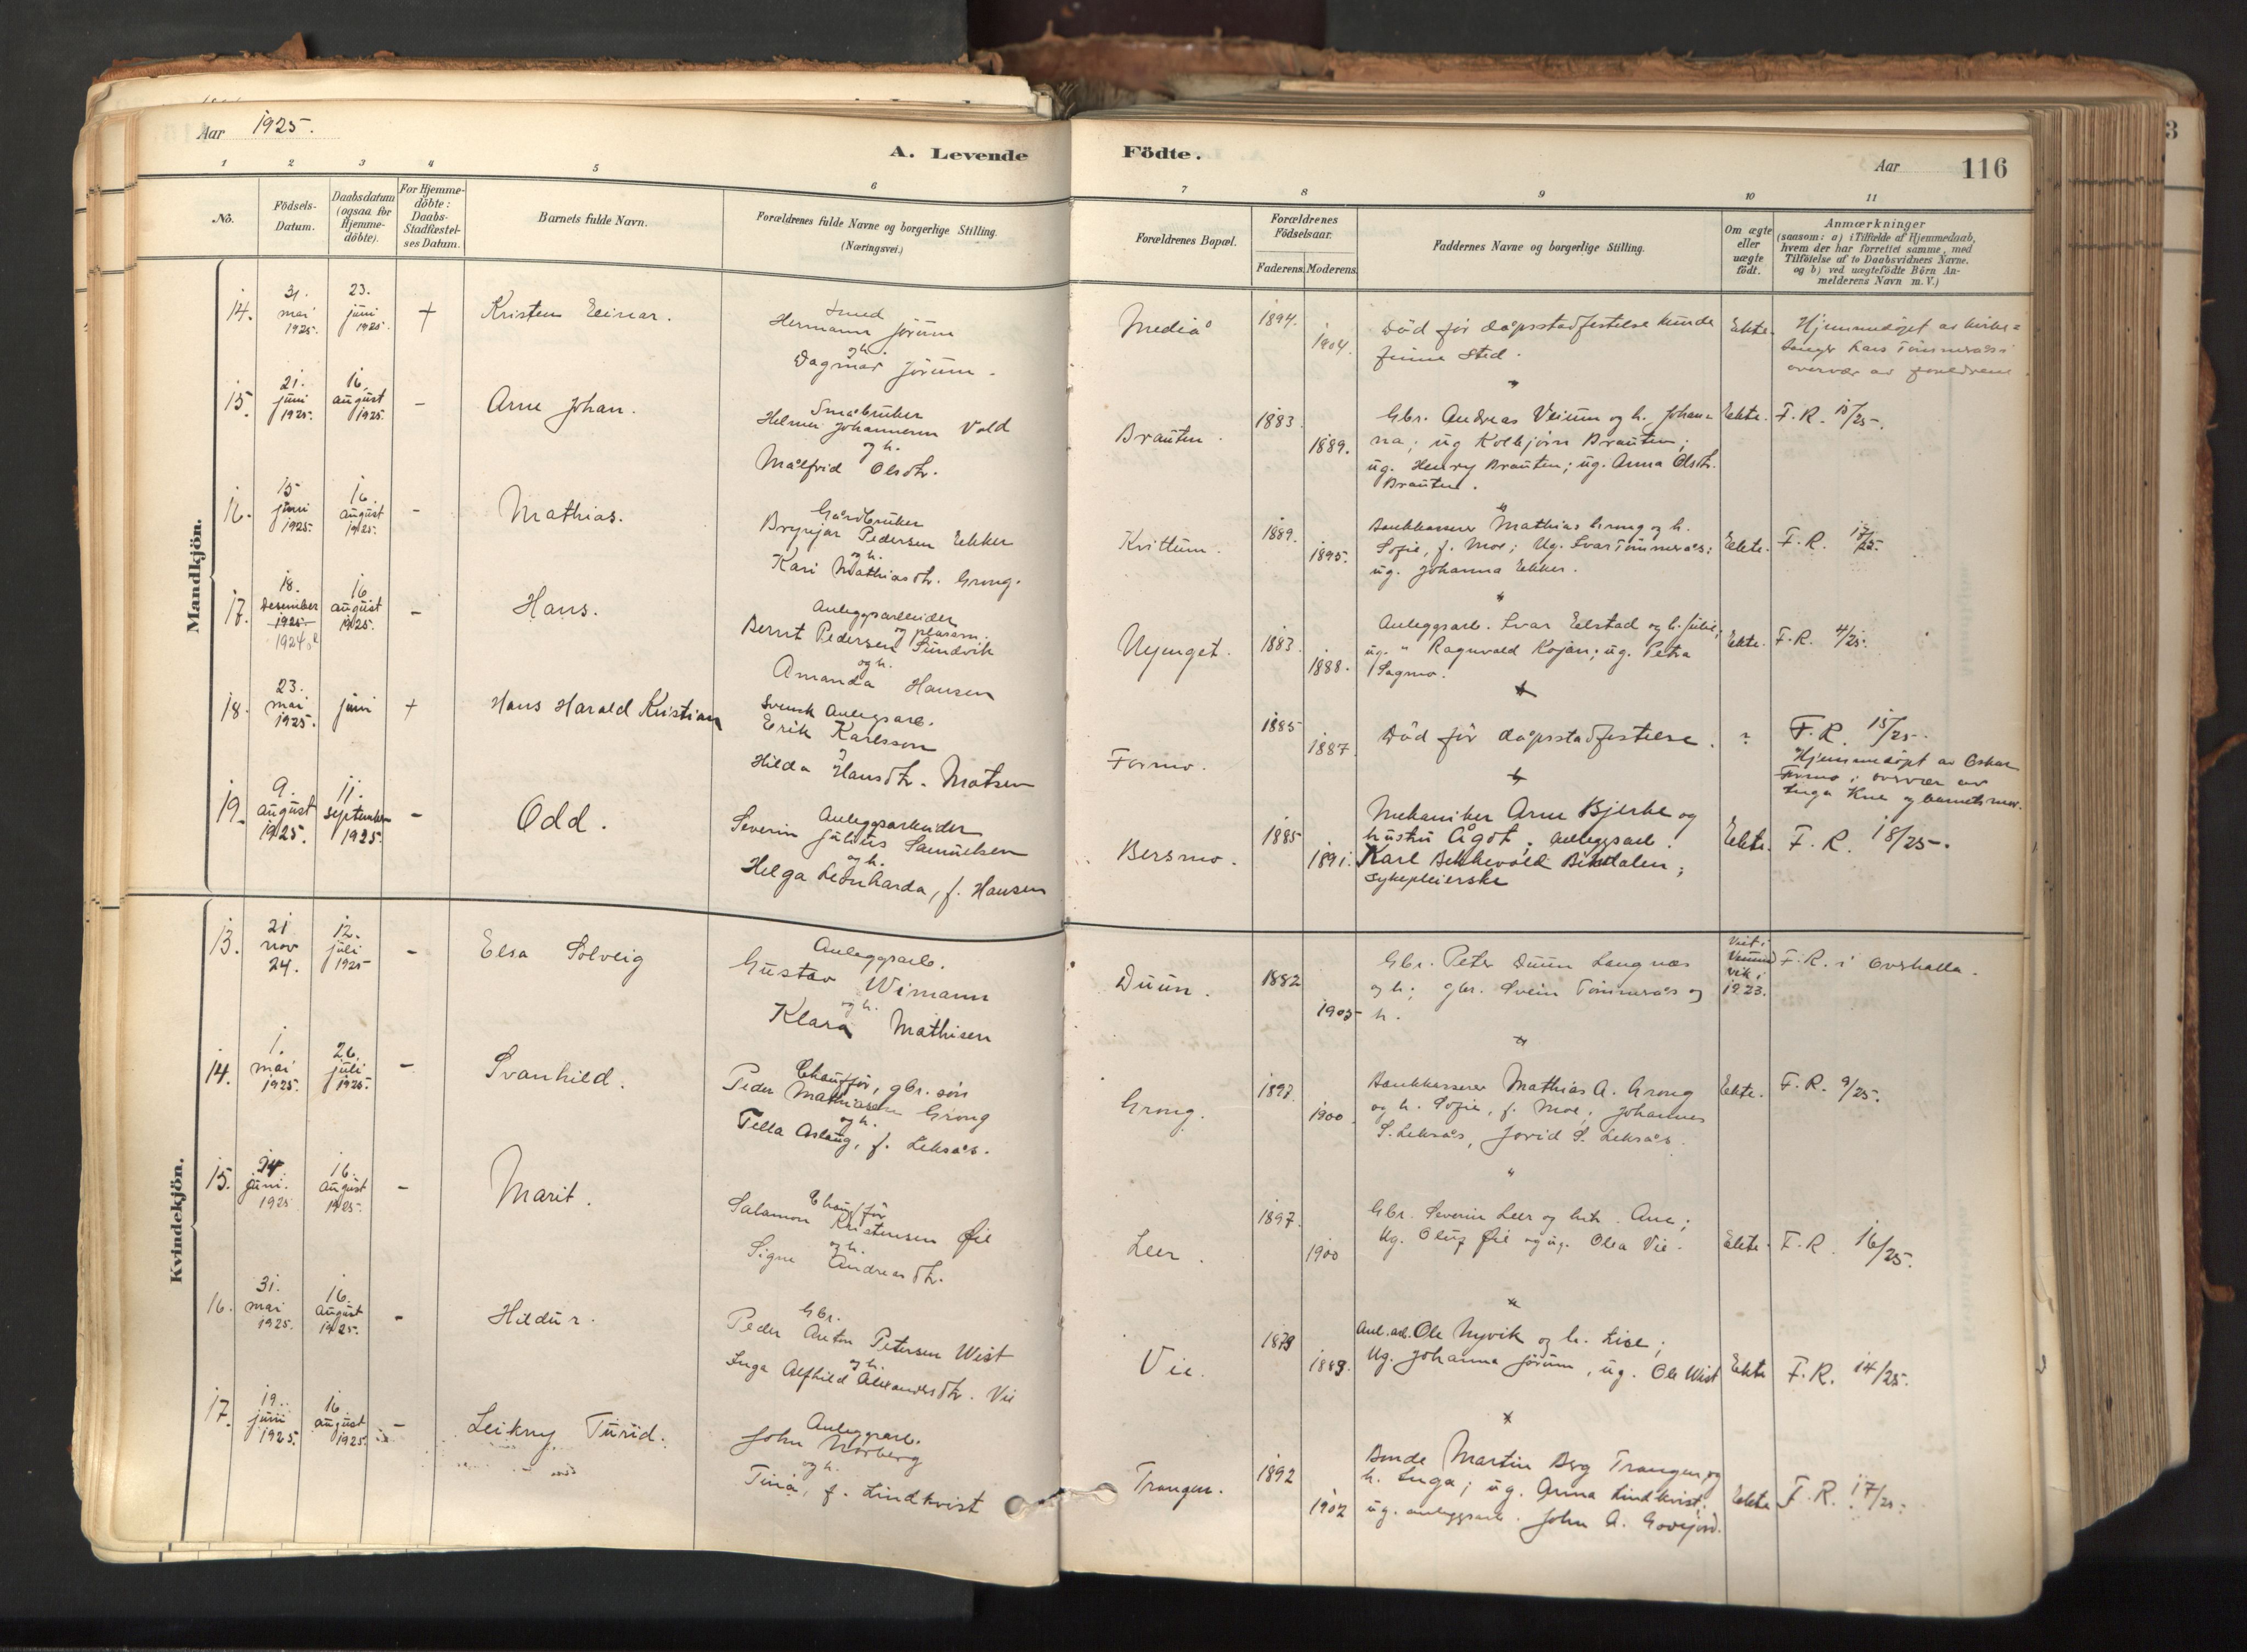 Aar 1925.
A. Levende
1 2 3 4 5 6
No.
Födsels-
Datum.
Daabsdatum
(ogsaa for
Hjemme-
döbte).
For Hjemme-
döbte:
Daabs-
Stadfæstel-
ses Datum.
Barnets fulde Navn.
Forældrenes fulde Navne og borgerlige Stilling.
(Næringsvei.)
Mandkjön.
14.
31.
mai
1925.
23.
juni
1925.
+
Kristen Einar.
Smed
Hermann Jörum
og h.
Dagmar Jörum.
15.
21.
juni
1925.
16.
august
1925.
-
Arne Johan.
Småbruker
Helmer Johannesen Vold
og h.
Målfrid Olsdtr.
16.
15
juni
1925.
16.
august
1925.
-
Mathias.
Gårdbruker
Brynjar Pedersen Ekker
og h.
Kari Mathiasdtr. Grong.
17.
18.
desember
1925.
1924
16
august
1925.
-
Hans.
Anleggsarbeider
og plassm.
Bernt Pedersen Sundvik
og h.
Amanda Hansen
18.
23.
mai
1925.
juni
+
Hans Harald Kristian
Svensk anlegsarb.
Erik Karlsson
Hilda Hansdtr. Matsen
19.
9.
august
1925.
11.
september
1925.
-
Odd.
Anleggsarbeider
Severin Julius Samuelsen
og h.
Helga Leonharda, f. Hansen
Kvindekjön.
13.
21
nov
24.
12.
juli
1925
-
Elsa Solveig
Anleggsarb.
Gustav Wimann
og h.
Klara Mathisen
14.
1.
mai
1925.
26.
juli
1925.
-
Svanhild.
Chauffør, gbr. sön
Peder Mathiasen Grong
og h.
Tella Aslaug, f. Leksås.
15.
24
juni.
1925
16.
august
1925.
-
Marit.
Chauffør
Salamon Kristensen Øie
og h.
Signe Andreasdtr.
16.
31.
mai
1925.
16.
august
1925.
-
Hildur.
Gbr.
Peder Anton Petersen Wist
og h.
Inga Alfhild Alexandersdtr. Vie
17.
19.
juni
1925.
16
august
1925.
-
Leikny Turid.
Anleggsarb.
John Norberg
og h.
Tina, f. Lindkvist
Födte.
Aar
116
7 8 9 10 11
Forældrenes Bopæl.
Forældrenes
Födselsaar.
Faderens. Moderens.
Faddernes Navne og borgerlige Stilling.
Om ægte
eller
uægte
födt.
Anmærkninger
(saasom: a) i Tilfælde af Hjemmedaab,
hvem der har forrettet samme, med
Tilföielse af to Daabsvidners Navne.
og b) ved uægtefödte Börn An-
melderens Navn m. V.)
Mediå
1894.
1904.
Död før dåpsstadfestelse kunde
finne sted.
Ekte.
Hjemmedöpt av kirke=
sanger Lars Tömmerås i
overvær av foreldrene
Brauten.
1883.
1889.
Gbr. Andreas Veium og h. Johan=
na; ug Kolbjörn Brauten;
ug. Henry Brauten; ug. Anna Olsdtr.
Brauten.
Ekte.
F. R. 15/25.
Kvittum.
1889.
1895.
Bankkasserer Mathias Grong og h.
Sofie, f. Moe; Ug. Ivar Tömmerås;
ug. Johanna Ekker.
Ekte.
F. R. 13/25.
Nynget.
1883.
1888.
Anleggsarb. Ivar Eilstad og h. Julie;
ug. " Ragnvald Kojan; ug. Petra
Sagmo.
Ekte.
F. R. 4/25.
Formo.
1885
1887.
Död før dåpsstadfestelse.
?
F. R. 15/25.
Hjemmedöpt av Oskar
Formo i overvær av
Inga Kne og barnets mor.
Bersmo.
1885
1891.
Mekaniker Arne Bjerke og
hustru Ågot; anleggsarb.
Karl Bekkevold Bekkdalen;
sykepleierske
Ekte.
F. R. 18/25.
Duun.
1882
1905
Gbr. Peter Duun Langnes
og h; gbr. Svein Tömmerås og
h.
Viet i
Vemund
vik i
1923.
F. R. i Overhalla.
Grong.
1897.
1900.
Bankkasserer Mathias A. Grong
og h. Sofie, f. Moe; Johannes
S. Leksås, Jorid S. Leksås.
Ekte.
F. R. 9/25.
Leer.
1897.
1900
Gbr. Severin Leer og hstr. Ane;
Ug. Oluf Øie og ug. Olea Vie.
Ekte.
F. R. 16/25.
Vie.
1879
1889.
Anl.arb. Ole Nyvik og h. Lise;
Ug. Johanna Jörum, ug. Ole Wist
Ekte
F. R. 14/25.
Trangen.
1892
1902
Bonde Martin Berg Trangen og
h. Inga; ug. Anna Lindkvist.
ug. anleggsarb. John A. Gartland.
Ekte
F. R. 17/25.